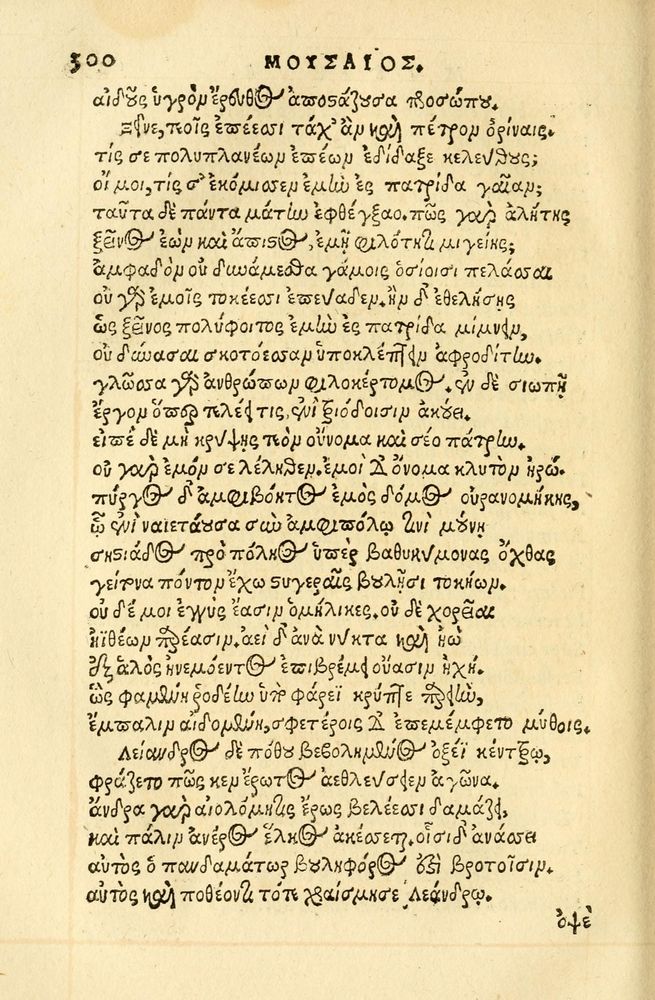 300 ΜΟΥΣΑΙΟΣ.
αἰδοῦς ὑγρὸν ἔρευθος ἀποστάζουσα προσώπου.
Ξεῖνε, τεοῖς ἐπέεσσι τάχ' ἂν καὶ πέτρον ὀρίναις.
τίς σε πολυπλανέων ἐπέων ἐδίδαξε κελεύθους;
οἴ μοι, τίς σ' ἐκόμισσεν ἐμὴν ἐς πατρίδα γαῖαν;
ταῦτα δὲ πάντα μάτην ἐφθέγξαο. πῶς γὰρ ἀλήτης
ξεῖνος ἐὼν καὶ ἄπιστος, ἐμῇ φιλότητι μιγείης;
ἀμφαδὸν οὐ δυνάμεσθα γάμοις ὁσίοισι πελάσσαι
οὐ γὰρ ἐμοῖς τοκέεσσι ἐπεύαδεν. ἢν δ' ἐθελήσῃς
ὡς ξεῖνος πολύφοιτος ἐμὴν ἐς πατρίδα μίμνειν,
οὐ δύνασαι σκοτόεσσαν ὑποκλέπτειν ἀφροδίτην.
γλῶσσα γὰρ ἀνθρώπων φιλοκέρτομος. ἐν δὲ σιωπῇ
ἔργον ὅπερ τελέει τις, ἐνὶ τριόδοισιν ἀκούει.
εἰπὲ δὲ μὴ κρύψῃς τεὸν οὔνομα καὶ σέο πάτρην.
οὐ γὰρ ἐμόν σε λέληθεν. ἐμοὶ δ' ὄνομα κλυτὸν ἡρώ.
πύργος δ' ἀμφιβόητος ἐμὸς δόμος οὐρανομήκης,
ᾧ ἐνὶ ναιετάουσα σὺν ἀμφιπόλῳ τινὶ μούνῃ
σηστιάδος πρὸ πόληος ὑπὲρ βαθυκύμονας ὄχθας
γείτονα πόντον ἔχω στυγεραῖς βουλῇσι τοκήων.
οὐδέ μοι ἐγγὺς ἔασιν ὁμήλικες. οὐδὲ χορεῖαι
ἠϊθέων παρέασιν. ἀεὶ δ' ἀνὰ νύκτα καὶ ἠῶ
ἐξ ἁλὸς ἠνεμόεντος ἐπιβρέμει οὔασιν ἠχή.
ὣς φαμένη ῥοδέην ὑπὸ φάρεϊ κρύπτε παρειήν,
ἔμπαλιν αἰδομένη, σφετέροις δ' ἐπεμέμφετο μύθοις.
Λείανδρος δὲ πόθου βεβολημένος ὀξέϊ κέντρῳ,
φράζετο πῶς κεν ἔρωτος ἀεθλεύσειεν ἀγῶνα.
ἄνδρα γὰρ αἰολόμητις ἔρως βελέεσσι δαμάζει,
καὶ πάλιν ἀνέρος ἕλκος ἀκέσσεται. οἷσι δ' ἀνάσσει
αὐτὸς ὁ πανδαμάτωρ βουληφόρος ἐστὶ βροτοῖσιν.
αὐτὸς καὶ ποθέοντι τότε χραίσμησε Λεάνδρῳ.
ὀψὲ